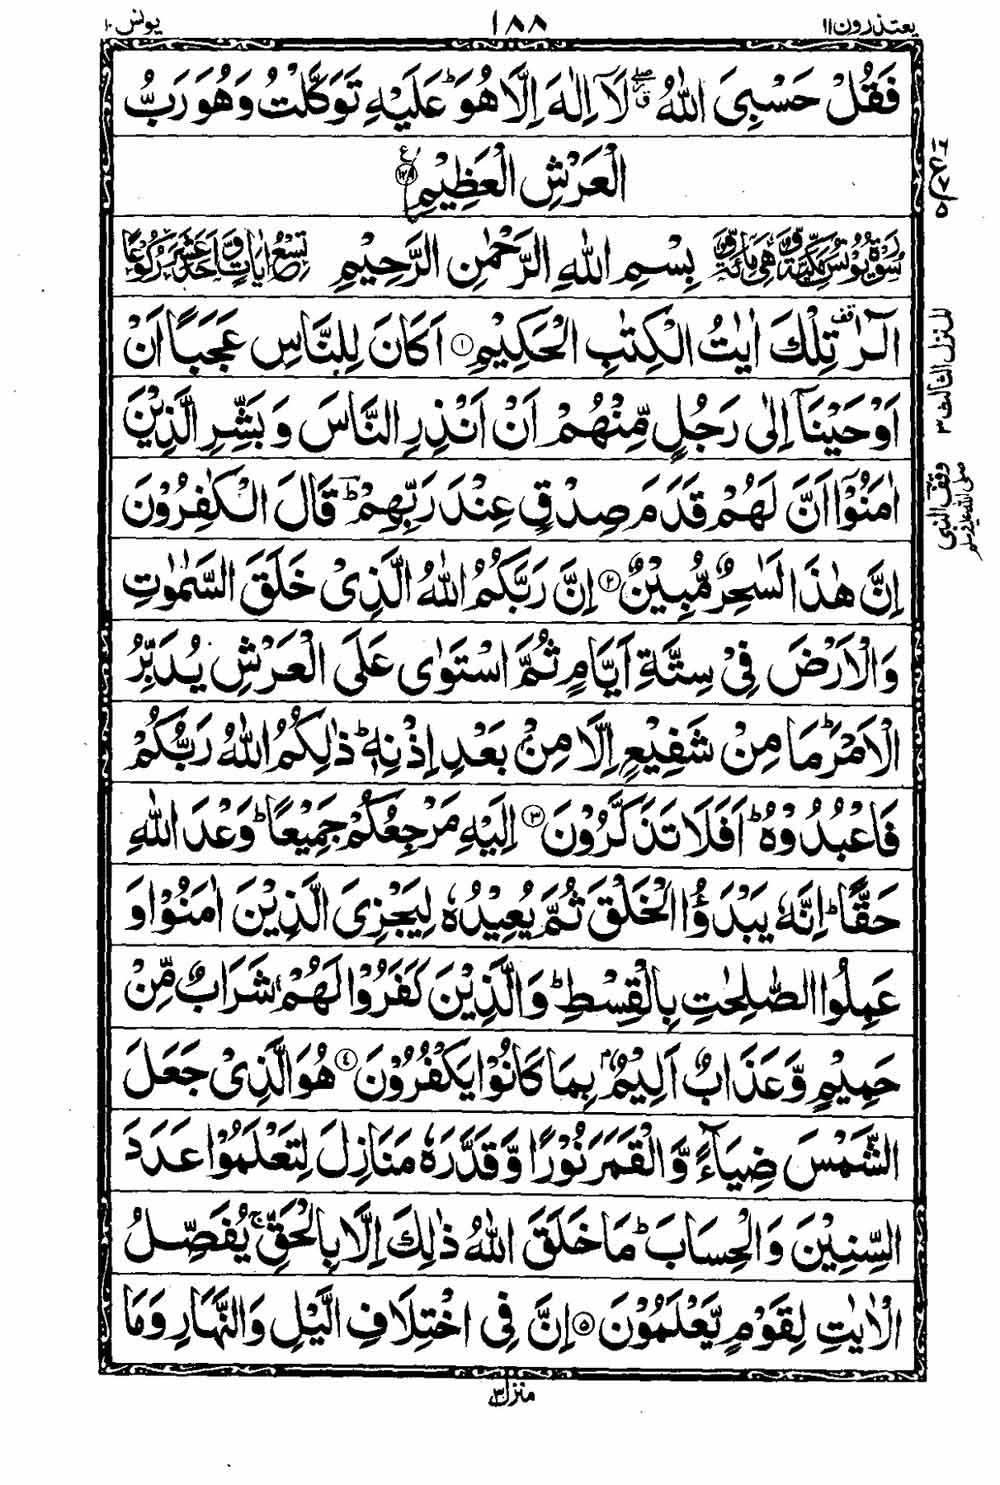 يعتذرون ١١
١٨٨
يونس ١٠
فَقُلْ حَسْبِیَ اللّٰهُ ۖ٘ لَاۤ اِلٰهَ اِلَّا هُوَ ؕ عَلَیْهِ تَوَكَّلْتُ وَ هُوَ رَبُّ
الْعَرْشِ الْعَظِیْمِ ۝۱۲۹
سُوْرَةُ یُوْنُسَ مَكِّیَّةٌ وَّ هِیَ مِائَةٌ وَّ بِسْمِ اللّٰهِ الرَّحْمٰنِ الرَّحِیْمِ تِسْعُ اٰیَاتٍ وَّ اَحَدَ عَشَرَ رُكُوْعًا
الٓرٰ ۫ تِلْكَ اٰیٰتُ الْكِتٰبِ الْحَكِیْمِ ۝۱ اَكَانَ لِلنَّاسِ عَجَبًا اَنْ
اَوْحَیْنَاۤ اِلٰی رَجُلٍ مِّنْهُمْ اَنْ اَنْذِرِ النَّاسَ وَ بَشِّرِ الَّذِیْنَ
اٰمَنُوْۤا اَنَّ لَهُمْ قَدَمَ صِدْقٍ عِنْدَ رَبِّهِمْ ؔؕ قَالَ الْكٰفِرُوْنَ
اِنَّ هٰذَا لَسٰحِرٌ مُّبِیْنٌ ۝۲ اِنَّ رَبَّكُمُ اللّٰهُ الَّذِیْ خَلَقَ السَّمٰوٰتِ
وَ الْاَرْضَ فِیْ سِتَّةِ اَیَّامٍ ثُمَّ اسْتَوٰی عَلَی الْعَرْشِ یُدَبِّرُ
الْاَمْرَ ؕ مَا مِنْ شَفِیْعٍ اِلَّا مِنْۢ بَعْدِ اِذْنِهٖ ؕ ذٰلِكُمُ اللّٰهُ رَبُّكُمْ
فَاعْبُدُوْهُ ؕ اَفَلَا تَذَكَّرُوْنَ ۝۳ اِلَیْهِ مَرْجِعُكُمْ جَمِیْعًا ؕ وَعْدَ اللّٰهِ
حَقًّا ؕ اِنَّهٗ یَبْدَؤُا الْخَلْقَ ثُمَّ یُعِیْدُهٗ لِیَجْزِیَ الَّذِیْنَ اٰمَنُوْا وَ
عَمِلُوا الصّٰلِحٰتِ بِالْقِسْطِ ؕ وَ الَّذِیْنَ كَفَرُوْا لَهُمْ شَرَابٌ مِّنْ
حَمِیْمٍ وَّ عَذَابٌ اَلِیْمٌۢ بِمَا كَانُوْا یَكْفُرُوْنَ ۝۴ هُوَ الَّذِیْ جَعَلَ
الشَّمْسَ ضِیَآءً وَّ الْقَمَرَ نُوْرًا وَّ قَدَّرَهٗ مَنَازِلَ لِتَعْلَمُوْا عَدَدَ
السِّنِیْنَ وَ الْحِسَابَ ؕ مَا خَلَقَ اللّٰهُ ذٰلِكَ اِلَّا بِالْحَقِّ ۚ یُفَصِّلُ
الْاٰیٰتِ لِقَوْمٍ یَّعْلَمُوْنَ ۝۵ اِنَّ فِی اخْتِلَافِ الَّیْلِ وَ النَّهَارِ وَ مَا
المنزل الثالث ٣
وقف النبي صلى الله عليه وسلم
منزل ٣